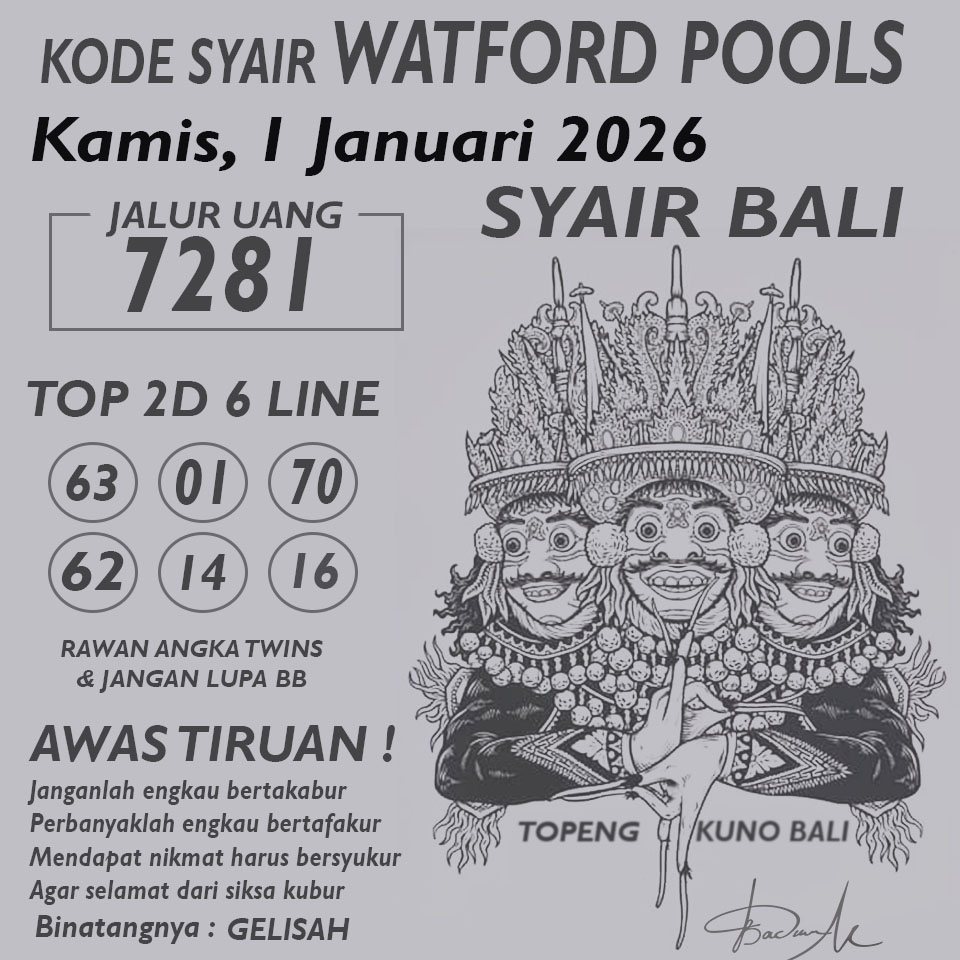 KODE SYAIR WATFORD POOLS
Kamis, 1 Januari 2026
SYAIR BALI
JALUR UANG
7281
TOP 2D 6 LINE
63 01 70
62 14 16
RAWAN ANGKA TWINS
& JANGAN LUPA BB
AWAS TIRUAN !
Janganlah engkau bertakabur
Perbanyaklah engkau bertafakur
Mendapat nikmat harus bersyukur
Agar selamat dari siksa kubur
Binatangnya : GELISAH
TOPENG KUNO BALI